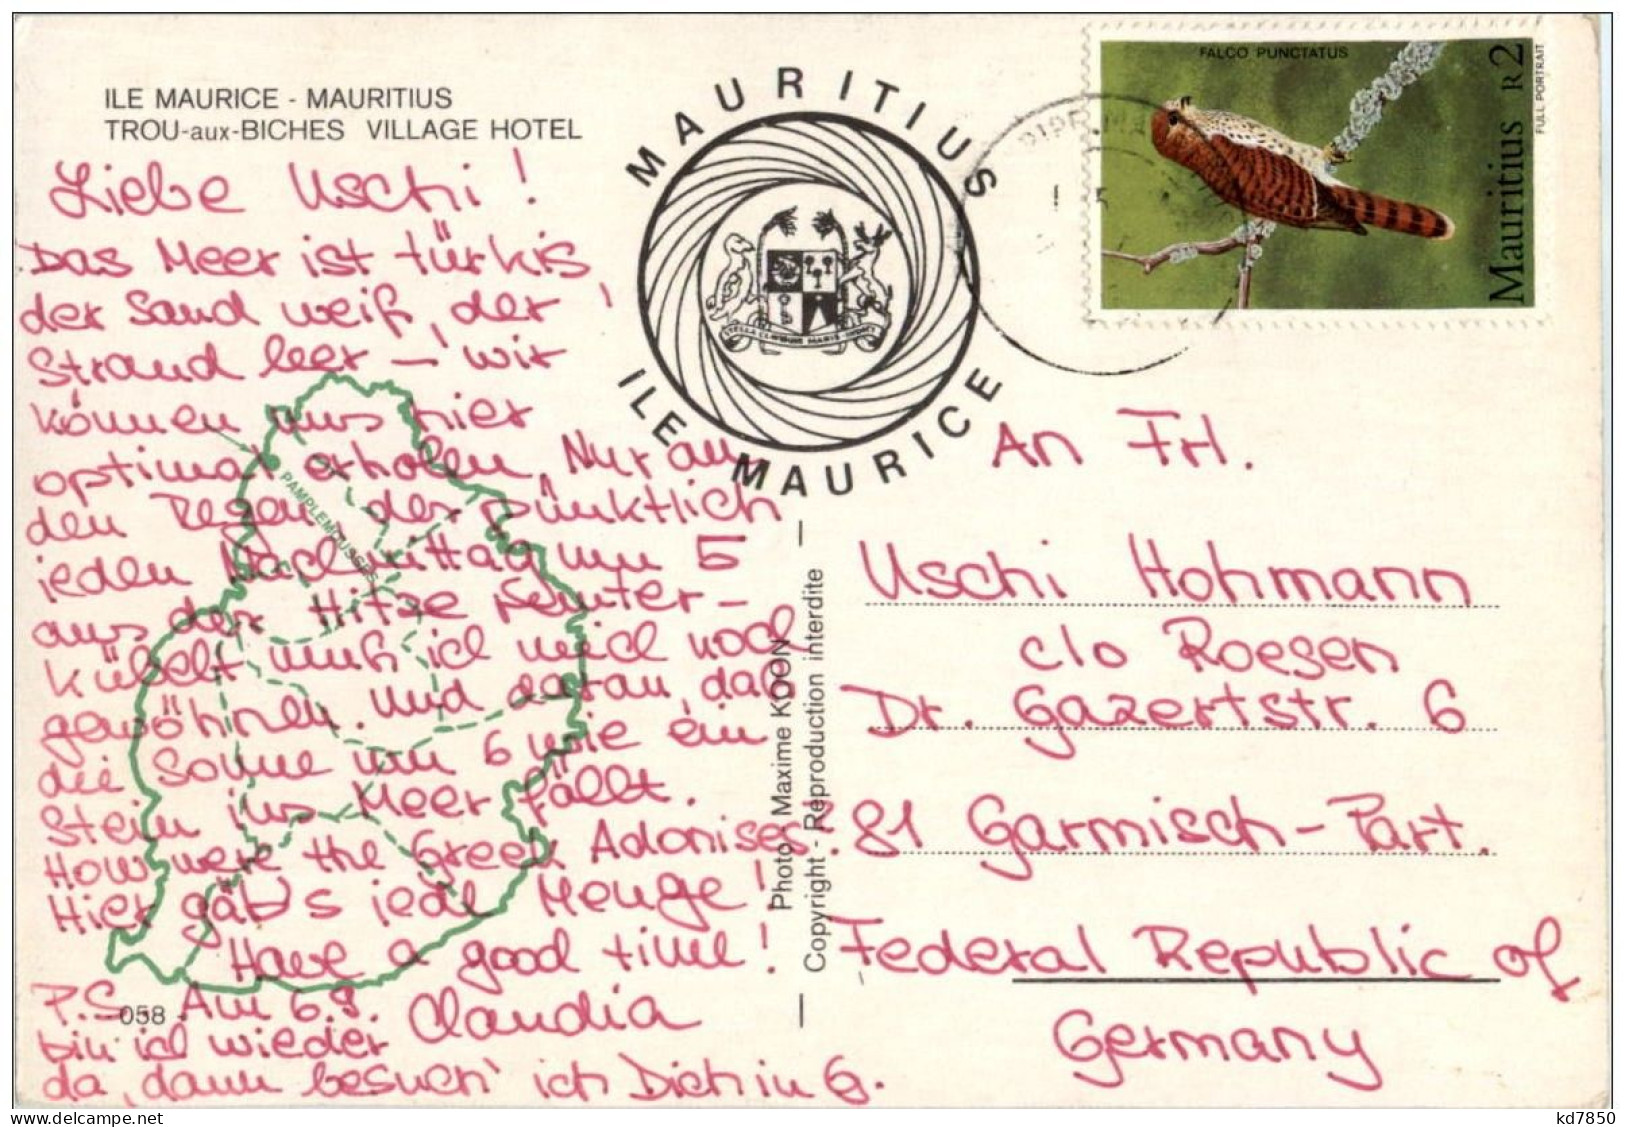 ILE MAURICE - MAURITIUS
TROU-aux-BICHES VILLAGE HOTEL
Liebe Uschi!
Das Meer ist türkis,
der Sand weiß, der
Strand leer – wir
können uns hier
optimal erholen. Nur an
den Regen, der pünktlich
jeden Nachmittag um 5
aus der Hitze
kübelt muß ich mich noch
gewöhnen. Und daran, daß
die Sonne um 6 wie ein
Stein ins Meer fällt.
How were the Greek Adonises?
Hier gäb's jede Menge!
Have a good time!
Claudia
P.S. Am 6.8.
bin ich wieder
da, dann besuch' ich Dich in G.
058
PAMPLEMOUSSES
MAURITIUS
STELLA CLAVISQUE MARIS INDICI
ILE MAURICE
Photo Maxime KOON
Copyright - Reproduction interdite
FALCO PUNCTATUS
Mauritius R2
FULL PORTRAIT
An Frl.
Uschi Hohmann
c/o Roesen
Dr. Gazertstr. 6
81 Garmisch-Part.
Federal Republic of
Germany
kd7850